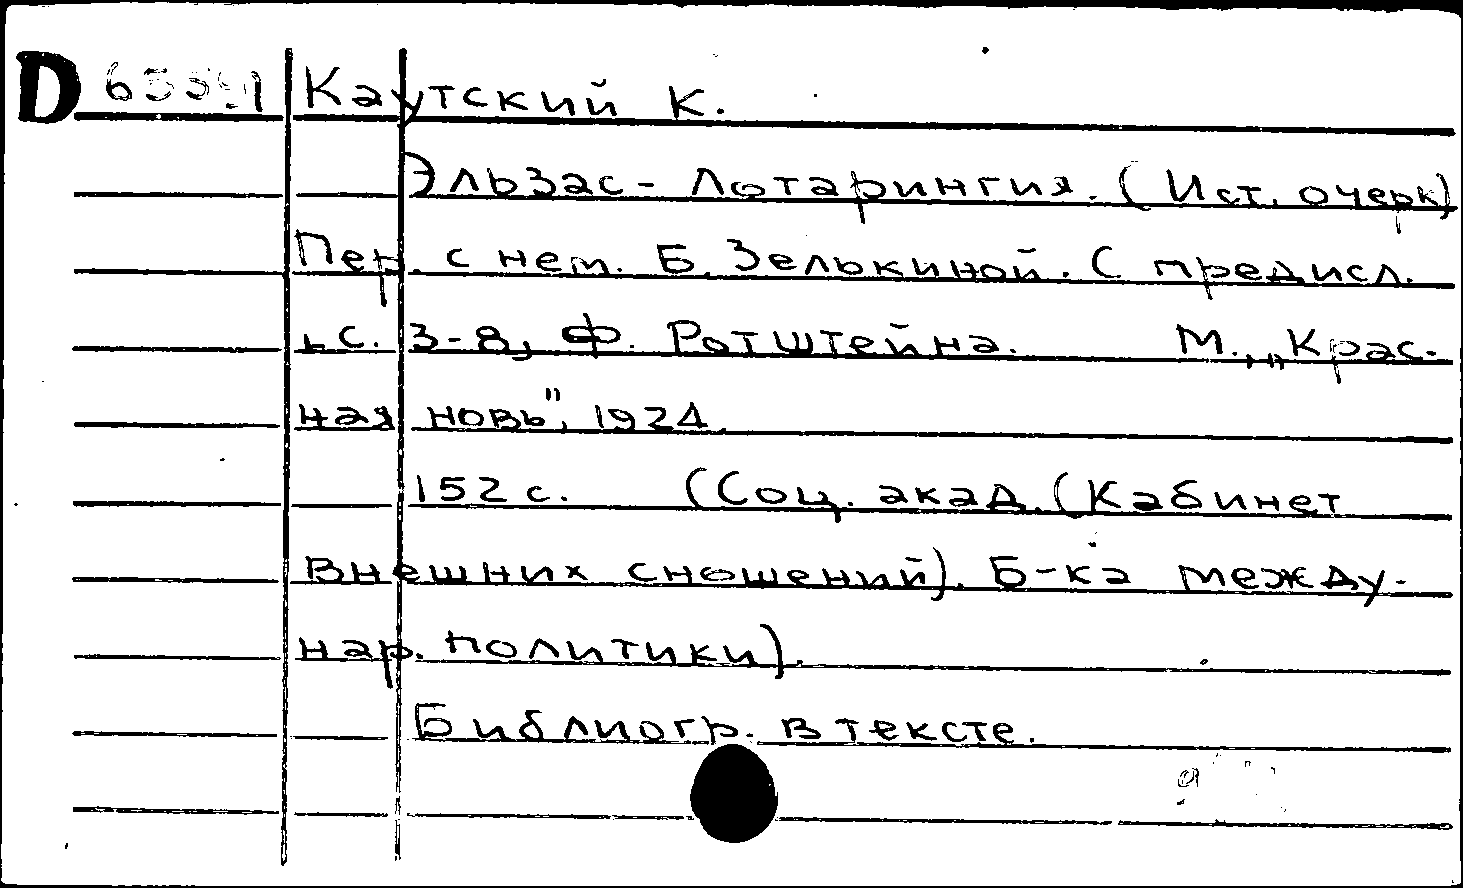 D Каутский К.
Эльзас-Лотарингия. (Ист. очерк)
Пер. с нем. Б. Зелькиной. С предисл.
, с. 3-8, Ф. Ротштейна. М., „Крас-
ная новь", 1924.
152 с. (Соц. акад. (Кабинет
внешних сношений). Б-ка между-
нар. политики).
Библиогр. в тексте.